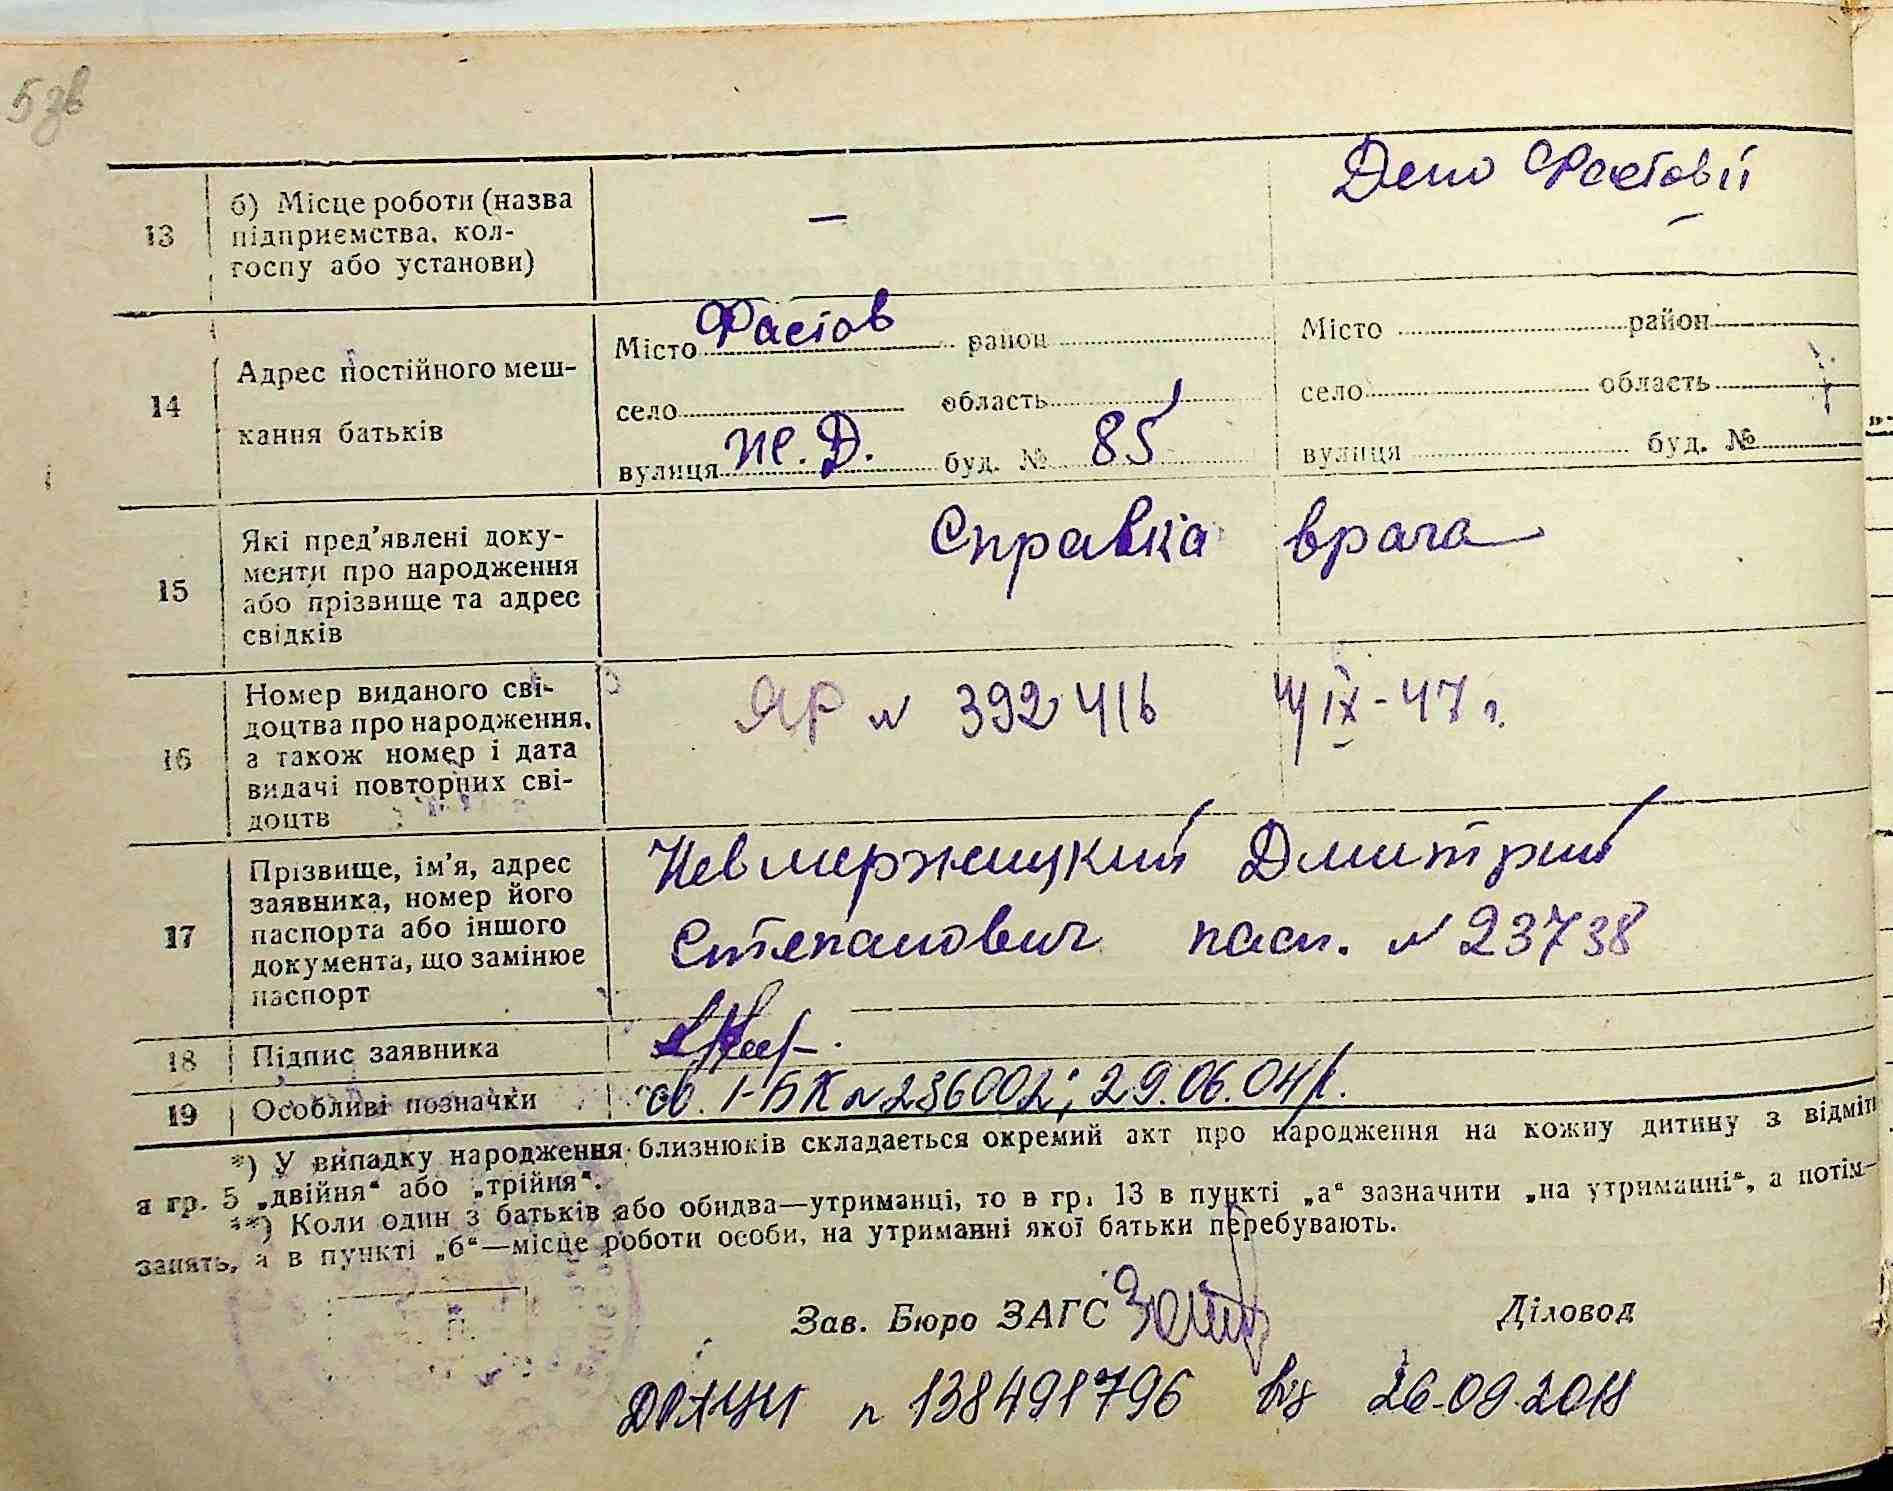 5 зв
Депо Фастов II
13 б) Місце роботи (назва
підприємства, кол-
госпу або установи)
— —
14 Адрес постійного меш-
кання батьків
Місто Фастов район
село область
вулиця Ж.Д. буд. № 85
Місто район
село область
вулиця буд. №
15 Які пред’явлені доку-
менти про народження
або прізвище та адрес
свідків
Справка врача
16 Номер виданого сві-
доцтва про народження,
а також номер і дата
видачі повторних сві-
доцтв
ЯР № 392416 4/IX-47 г.
17 Прізвище, ім’я, адрес
заявника, номер його
паспорта або іншого
документа, що замінює
паспорт
Невмержицкий Дмитрий
Степанович пасп. № 23738
18 Підпис заявника
19 Особливі позначки
св. I-БК № 236002; 29.06.04р.
*) У випадку народження близнюків складається окремий акт про народження на кожну дитину з відміт
а гр. 5 „двійня“ або „трійня“.
**) Коли один з батьків або обидва—утриманці, то в гр. 13 в пункті „а“ зазначити „на утриманні“, а потім—
занять, а в пункті „б“—місце роботи особи, на утриманні якої батьки перебувають.
Зав. Бюро ЗАГС Діловод
ДРАЦГ № 138491796 від 26.09.2011